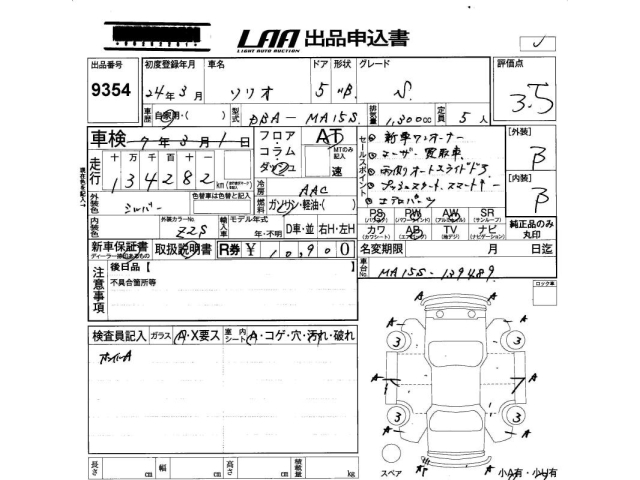 LAA 出品申込書
LIGHT AUTO AUCTION
出品番号 9354
初度登録年月 24年3月
車名 ソリオ
ドア 5 形状 HB
グレード S
評価点 3.5
車歴 自家用・( )
型式 DBA-MA15S
排気量 1,300cc
定員 5人
車検 7年3月1日
フロア・コラム・ダッシュ
AT
MTのみ記入
速
セールスポイント
新車ワンオーナー
ユーザー買取車
両側オートスライドドア
プッシュスタート、スマートキー
エアロパーツ
【外装】 B
【内装】 B
走行 十万千百十一
134282 km
冷房 AAC
燃料 ガソリン・軽油・( )
現在色を記入→
外装色 シルバー
色替車は色替と記入
内装色
外装カラーNo. Z2S
輸入車 モデル年式 年・不明
D車・並 右H・左H
PS (パワステ) PW (パワーウインド) AW (アルミホイル) SR (サンルーフ)
カワ (カワシート) AB (エアバック) TV (地デジ) ナビ (ナビゲーション)
純正品のみ丸印
新車保証書
ディーラー捺印あるもの
取扱説明書
R券 ¥10,900
名変期限 月 日迄
注意事項
後日品【
不具合箇所等
車台No. MA15S-139489
ロック車
検査員記入
ガラス A・X要ス
室内シート A・コゲ・穴・汚れ・破れ
ボンパーA
A A
3 3
A A
A A
3 3
A A
スペア
小A有・小U有
長さ cm 幅 cm 高さ cm 積載量 kg